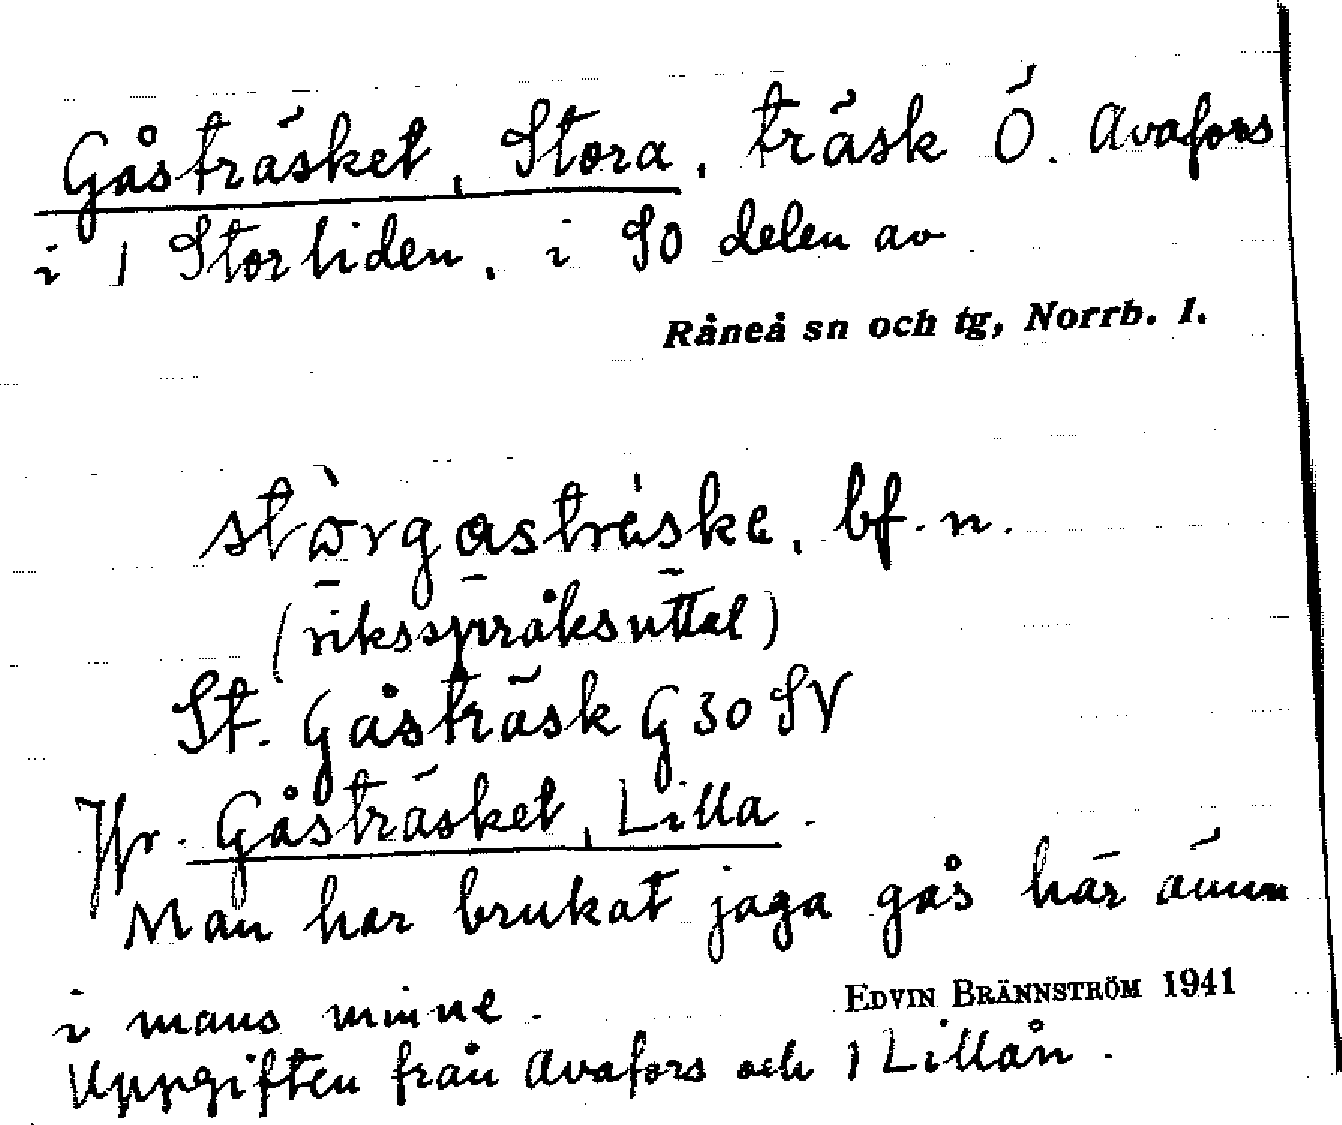 Gåsträsket, Stora, träsk Ö. Avafors
i 1 Storliden, i SO delen av
Råneå sn och tg, Norrb. l.
stòrgastrèske, bf. n.
(riksspråksuttal)
St. Gåsträsk G 30 SV
Jfr. Gåsträsket, Lilla.
Man har brukat jaga gås här ännu
i mans minne.
EDVIN BRÄNNSTRÖM 1941
Uppgiften från Avafors och 1 Lillån.